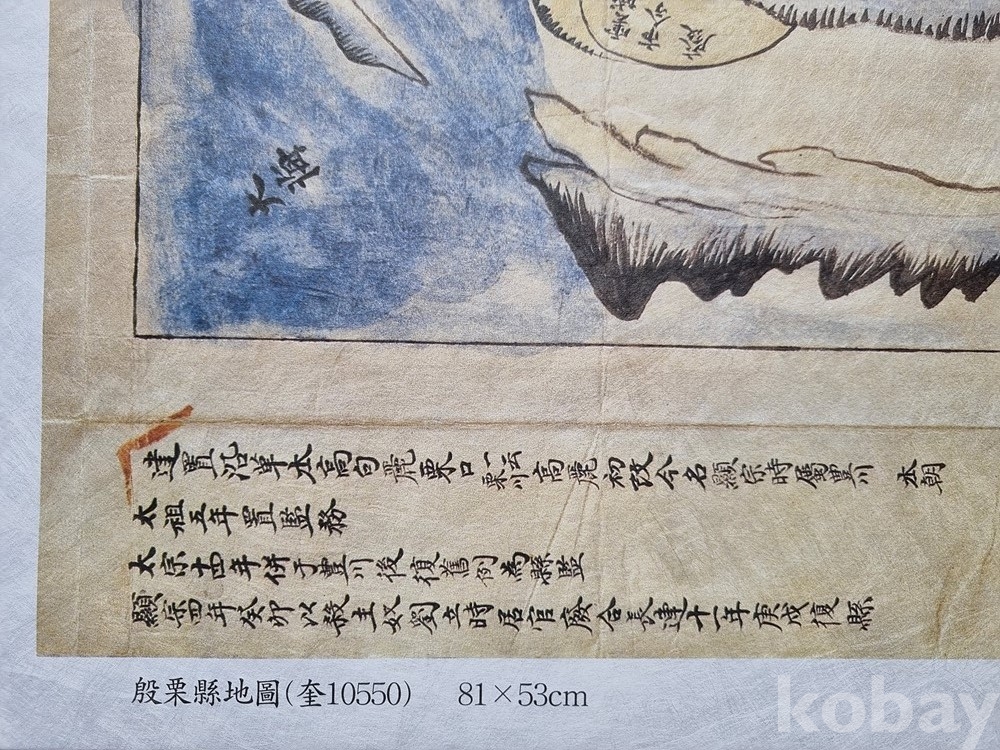 大海
建置沿革本高句麗栗口一云栗川高麗初改今名顯宗時屬豊川 本朝
太祖五年置監務
太宗十四年併于豊川後復舊例為縣監
顯宗四年癸卯以殺主奴劉立時居官廢合長連十一年庚戌復縣
殷栗縣地圖(奎10550) 81×53cm
kobay